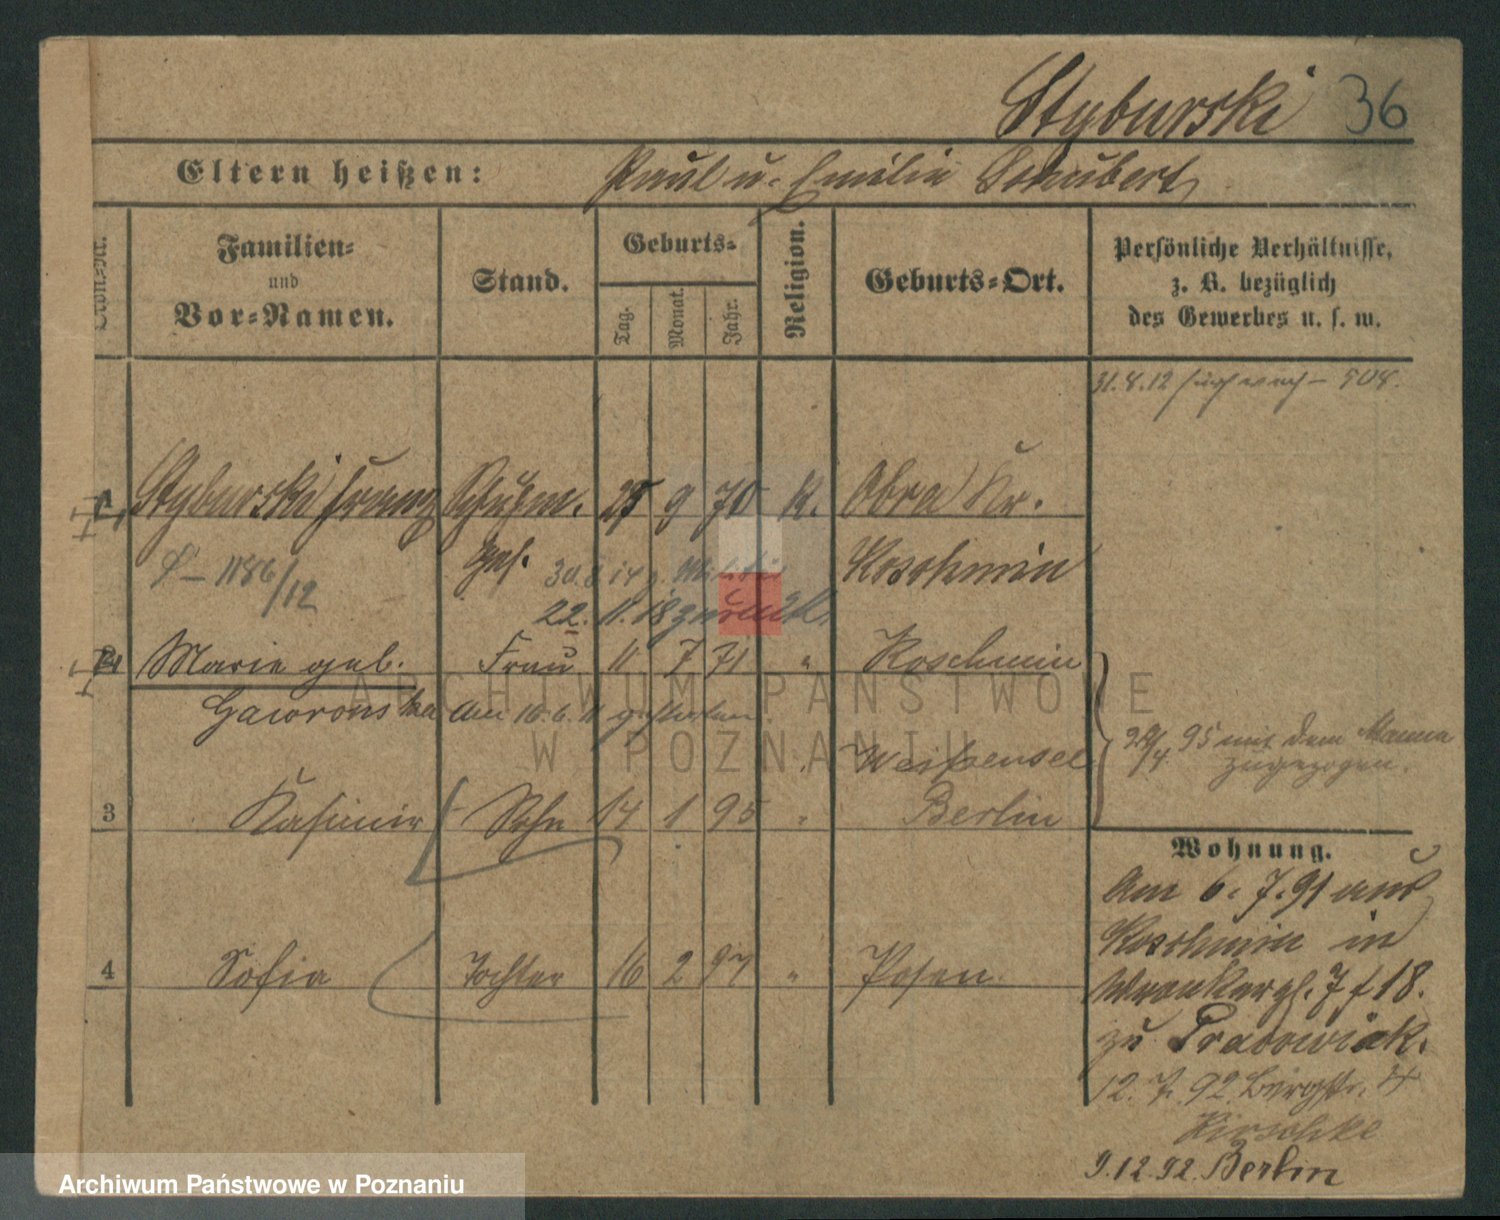 Styburski 36
Eltern heißen: Paul u. Emilie Schubert
Lfd.-Nr.
Familien-
und
Vor-Namen.
Stand.
Geburts-
Tag.
Monat.
Jahr.
Religion.
Geburts-Ort.
Persönliche Verhältnisse,
z. B. bezüglich
des Gewerbes u. s. w.
31.8.12
1 Styburski Franz Schuhm. 25 9 70 K. Obra Kr.
1186/12 Ges. Koschmin
22. 11. 18 zurück
2 Marie geb. Frau 11 7 71 " Koschmin
Gawronska am 16.6.11 gestorben
95 mit dem Manne
zugezogen.
Weißensee
3 Kasimir Sohn 14 1 95 " Berlin
4 Sofia Tochter 16 2 97 " Posen
Wohnung.
Am 6. 7. 91 aus
Koschmin in
Wronkerstr. 7 f 18.
zu
12. 7. 92 Bergstr. 4
Hirschke
9.12.92. Berlin
ARCHIWUM PAŃSTWOWE
W POZNANIU
Archiwum Państwowe w Poznaniu